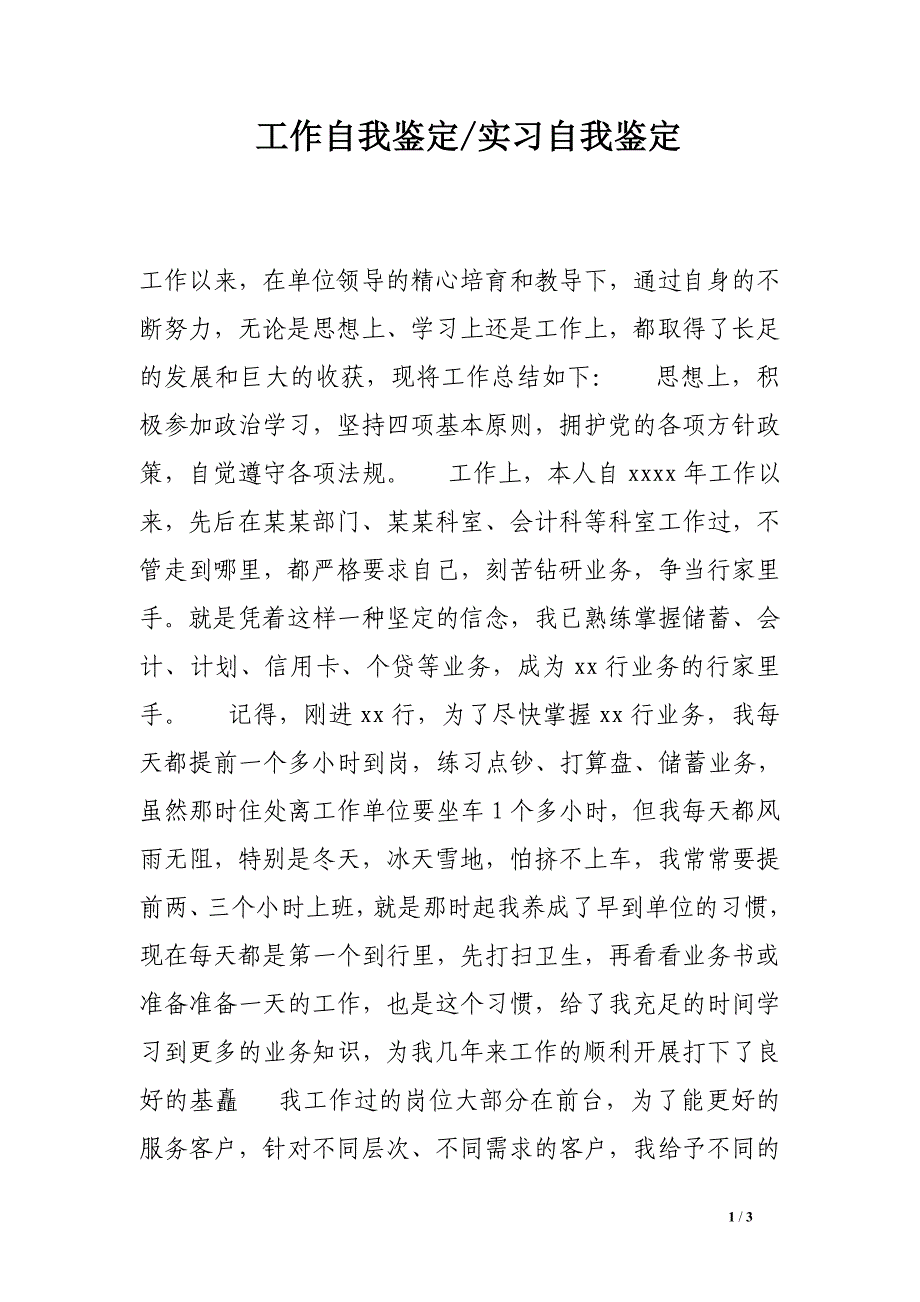 工作自我鉴定/实习自我鉴定
工作以来，在单位领导的精心培育和教导下，通过自身的不
断努力，无论是思想上、学习上还是工作上，都取得了长足
的发展和巨大的收获，现将工作总结如下：　　思想上，积
极参加政治学习，坚持四项基本原则，拥护党的各项方针政
策，自觉遵守各项法规。　　工作上，本人自 xxxx 年工作以
来，先后在某某部门、某某科室、会计科等科室工作过，不
管走到哪里，都严格要求自己，刻苦钻研业务，争当行家里
手。就是凭着这样一种坚定的信念，我已熟练掌握储蓄、会
计、计划、信用卡、个贷等业务，成为 xx 行业务的行家里
手。　　记得，刚进 xx 行，为了尽快掌握 xx 行业务，我每
天都提前一个多小时到岗，练习点钞、打算盘、储蓄业务，
虽然那时住处离工作单位要坐车 1 个多小时，但我每天都风
雨无阻，特别是冬天，冰天雪地，怕挤不上车，我常常要提
前两、三个小时上班，就是那时起我养成了早到单位的习惯，
现在每天都是第一个到行里，先打扫卫生，再看看业务书或
准备准备一天的工作，也是这个习惯，给了我充足的时间学
习到更多的业务知识，为我几年来工作的顺利开展打下了良
好的基矗　　我工作过的岗位大部分在前台，为了能更好的
服务客户，针对不同层次、不同需求的客户，我给予不同的
1 / 3